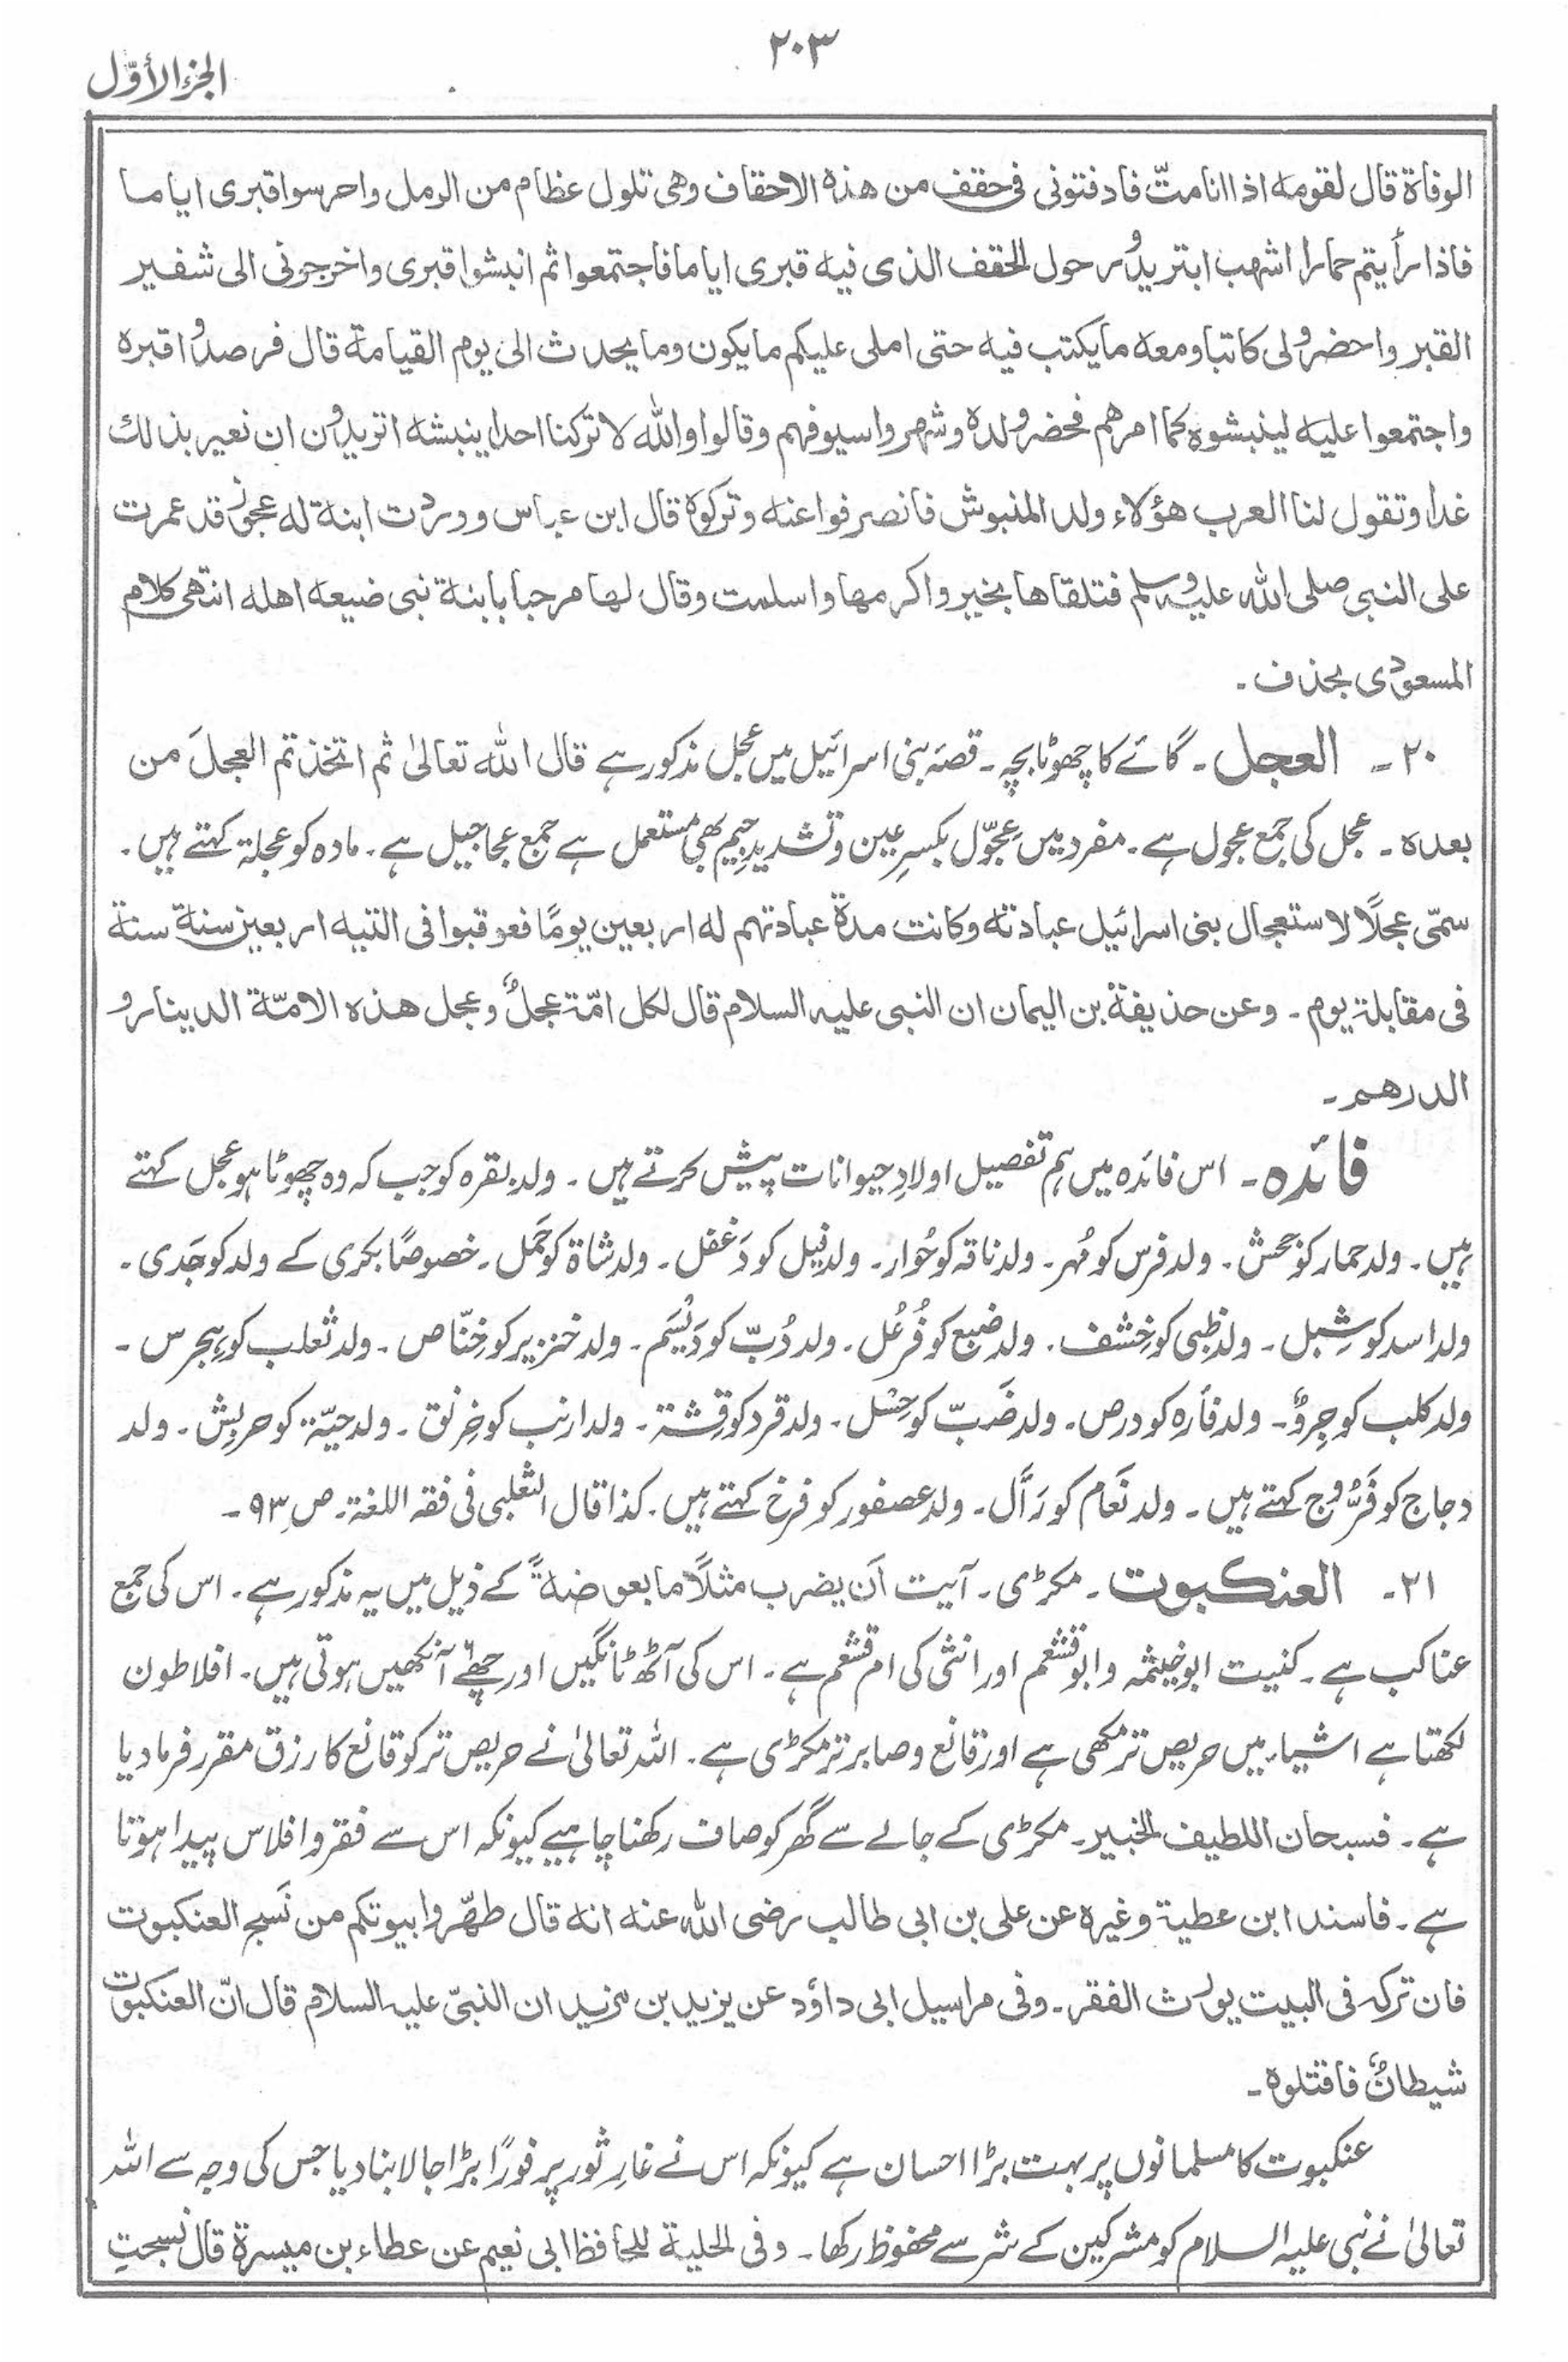 ۲۰۳
الجزء الأوّل
الوفاة قال لقومه اذا انا متّ فادفنونی فی حقف من هذه الاحقاف وهی تلول عظام من الرمل واحرسوا قبری ایاما
فاذا رأیتم حمارا اشهب ابتر یدور حول الحقف الذی فیه قبری ایاما فاجتمعوا ثم انبشوا قبری واخرجونی الی شفیر
القبر واحضروا لی کاتبا ومعه مایکتب فیه حتی املی علیکم مایکون ومایحدث الی یوم القیامة قال فرصدوا قبره
واجتمعوا علیه لینبشوه کما امرهم فحضر ولده وشهروا سیوفهم وقالوا والله لا ترکنا احدا ینبشه اتریدون ان نعیر بذلك
غدا وتقول لنا العرب هؤلاء ولد المنبوش فانصرفوا عنه وترکوه قال ابن عباس ووردت ابنة له عجوز قد عمرت
علی النبی صلی الله علیه وسلم فتلقاها بخیر واکرمها واسلمت وقال لها مرحبا بابنة نبی ضیعه اهله انتهی کلام
المسعودی بحذف ۔
۲۰۔ العجل ۔ گائے کا چھوٹا بچہ ۔ قصۂ بنی اسرائیل میں عجل مذکور ہے قال الله تعالیٰ ثم اتخذتم العجلَ من
بعدہ ۔ عجل کی جمع عجول ہے ۔ مفرد میں عِجّول بکسرِ عین و تشدیدِ جیم بھی مستعمل ہے جمع عجاجیل ہے ۔ مادہ کو عجلۃ کہتے ہیں ۔
سمّی عجلًا لاستعجال بنی اسرائیل عبادته وکانت مدة عبادتهم له اربعین یومًا فعوقبوا فی التیه اربعین سنة سنة
فی مقابلة یوم ۔ وعن حذیفة بن الیمان ان النبی علیه السلام قال لکل امّة عجلٌ وعجل هذه الامّة الدینار و
الدرهم ۔
فائدہ ۔ اس فائدہ میں ہم تفصیل اولادِ حیوانات پیش کرتے ہیں ۔ ولد بقرہ کو جب کہ وہ چھوٹا ہو عجل کہتے
ہیں ۔ ولد حمار کو جحش ۔ ولد فرس کو مُہر ۔ ولد ناقہ کو حُوار ۔ ولد فیل کو دَغفل ۔ ولد شاۃ کو حَمَل ۔ خصوصًا بکری کے ولد کو جَدی ۔
ولد اسد کو شِبل ۔ ولد ظبی کو خِشف ۔ ولد ضبع کو فُرعُل ۔ ولد دُبّ کو دَیسَم ۔ ولد خنزیر کو خِنّاص ۔ ولد ثعلب کو ہِجرس ۔
ولد کلب کو جِروٌ ۔ ولد فأرہ کو درص ۔ ولد ضَبّ کو حِسل ۔ ولد قرد کو قِشۃ ۔ ولد ارنب کو خِرنق ۔ ولد حیّۃ کو حربش ۔ ولد
دجاج کو فَرُّوج کہتے ہیں ۔ ولد نَعَام کو رَأل ۔ ولد عصفور کو فرخ کہتے ہیں ۔ کذا قال الثعلبی فی فقہ اللغۃ ۔ ص ۹۳ ۔
۲۱۔ العنکبوت ۔ مکڑی ۔ آیت اَن یضرب مثلًا ما بعوضةً کے ذیل میں یہ مذکور ہے ۔ اس کی جمع
عناکب ہے ۔ کنیت ابوخیثمہ و ابوقشعم اور انثی کی ام قشعم ہے ۔ اس کی آٹھ ٹانگیں اور چھ آنکھیں ہوتی ہیں ۔ افلاطون
لکھتا ہے اشیاء میں حریص تر مکھی ہے اور قانع و صابر تر مکڑی ہے ۔ اللہ تعالیٰ نے حریص تر کو قانع کا رزق مقرر فرما دیا
ہے ۔ فسبحان اللطیف الخبیر ۔ مکڑی کے جالے سے گھر کو صاف رکھنا چاہیے کیونکہ اس سے فقر و افلاس پیدا ہوتا
ہے ۔ فاسند ابن عطیة وغیره عن علی بن ابی طالب رضی الله عنه انه قال طهّروا بیوتکم من نَسج العنکبوت
فان ترکه فی البیت یورث الفقر ۔ وفی مراسیل ابی داؤد عن یزید بن مزید ان النبیّ علیه السلام قال انّ العنکبوت
شیطانٌ فاقتلوه ۔
عنکبوت کا مسلمانوں پر بہت بڑا احسان ہے کیونکہ اس نے غارِ ثور پر فورًا بڑا جالا بنا دیا جس کی وجہ سے اللہ
تعالیٰ نے نبی علیہ السلام کو مشرکین کے شر سے محفوظ رکھا ۔ وفی الحلیة للحافظ ابی نعیم عن عطاء بن میسرة قال نسجتِ